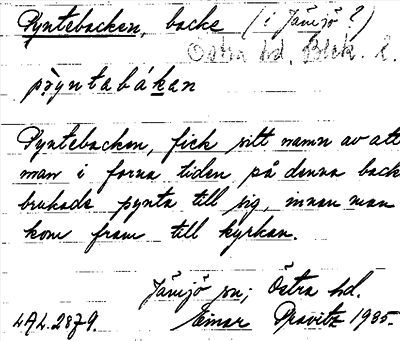 Pyntebacken, backe (i Jämjö?)
Östra hd. Blek. l.
pỳntabákan
Pyntebacken, fick sitt namn av att
man i forna tiden på denna back
brukade pynta till sig, innan man
kom fram till kyrkan.
Jämjö sn; Östra hd.
4AL.2879. Einar Pravitz 1935.